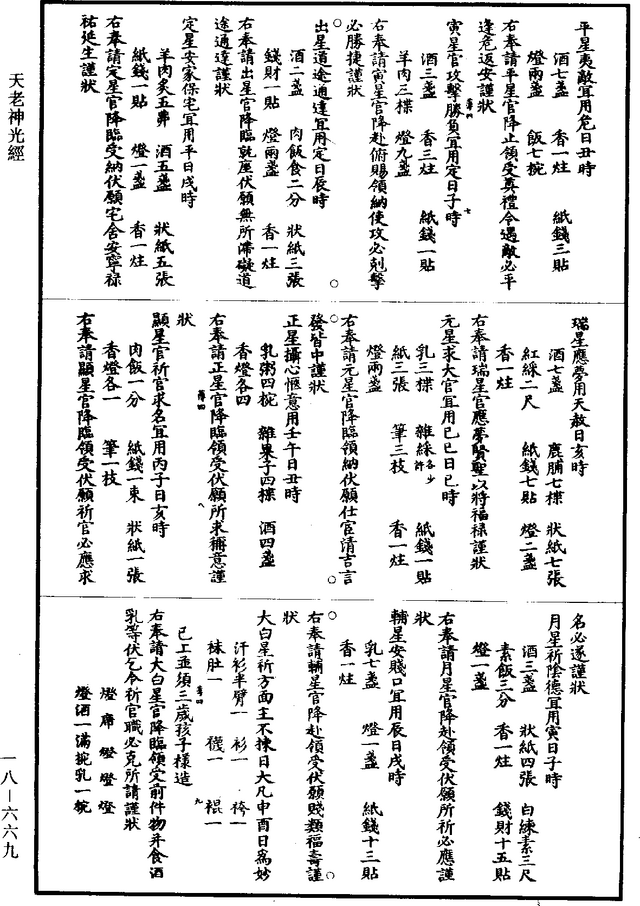 天老神光經
平星夷敵宜用危日丑時
酒七盞　香一炷　紙錢三貼
燈兩盞　飯七椀
右奉請平星官降止領受奠禮令遇敵必平
逢危返安謹狀
寅星官攻擊勝負宜用定日子時
酒三盞　香三炷　紙錢一貼
羊肉三楪　燈九盞
右奉請寅星官降赴俯賜領納使攻必剋擊
必勝捷謹狀
出星道途通達宜用定日辰時
酒二盞　肉飯食二分　狀紙三張
錢財一貼　燈兩盞　香一炷
右奉請出星官降臨就座伏願無所滯礙道
途通達謹狀
定星安家保宅宜用平日戌時
羊肉炙五弗　酒五盞　狀紙五張
紙錢一貼　燈一盞　香一炷
右奉請定星官降臨受納伏願宅舍安寧祿
祐延生謹狀
瑞星應夢用天赦日亥時
酒七盞　鹿脯七楪　狀紙七張
紅綵二尺　紙錢七貼　燈二盞
香一炷
右奉請瑞星官應夢賢聖以將福祿謹狀
元星求大官宜用巳巳日巳時
乳三楪　雜綵各少許　紙錢一貼
紙三張　筆三枝　香一炷
燈兩盞
右奉請元星官降臨領納伏願仕官清吉言
發皆中謹狀
正星攝心愜意用壬午日丑時
乳粥四椀　雜果子四楪　酒四盞
香燈各四
右奉請正星官降臨領受伏願所求稱意謹
狀
顯星官祈官求名宜用丙子日亥時
肉飯一分　紙錢一束　狀紙一張
香燈各一　筆一枝
右奉請顯星官降臨領受伏願祈官必應求
名必遂謹狀
月星祈陰德宜用寅日子時
酒三盞　狀紙四張　白練素三尺
素飯三分　香一炷　錢財十五貼
燈一盞
右奉請月星官降赴領受伏願所祈必應謹
狀
輔星安賤口宜用辰日戌時
乳七盞　燈一盞　紙錢十三貼
香一炷
右奉請輔星官降赴領受伏願賤類福壽謹
狀
大白星祈方面主不揀日大凡申酉日為妙
汗衫半臂一　衫一　袴一
襪肚一　襪一　裩一
已上並須三歲孩子樣造
右奉請大白星官降臨領受前件物并食酒
乳等伏乞今祈官職必克所請謹狀
燈　席　燈　燈　燈
燈酒一滿椀乳一椀
一八—六六九